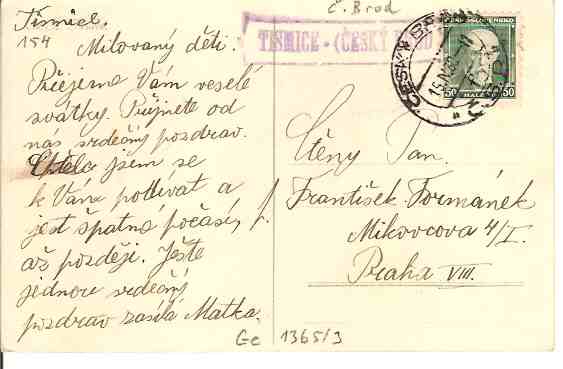 Tismice.
154
Č. Brod
TISMICE - (ČESKÝ BROD)
ČESKÝ BROD
ČESKOSLOVENSKO
50 HALÉŘŮ 50
Milovaný děti.
Přejeme Vám veselé
svátky. Přijmete od
nás srdečný pozdrav.
Chtěla jsem se
k Vám podívat a
jest špatné počasí,
až později. Ješte
jednou srdečný
pozdrav zasílá Matka.
Ctěny Pan.
František Formánek
Mikovcova 4/I.
Praha VIII.
Ge 1365/3